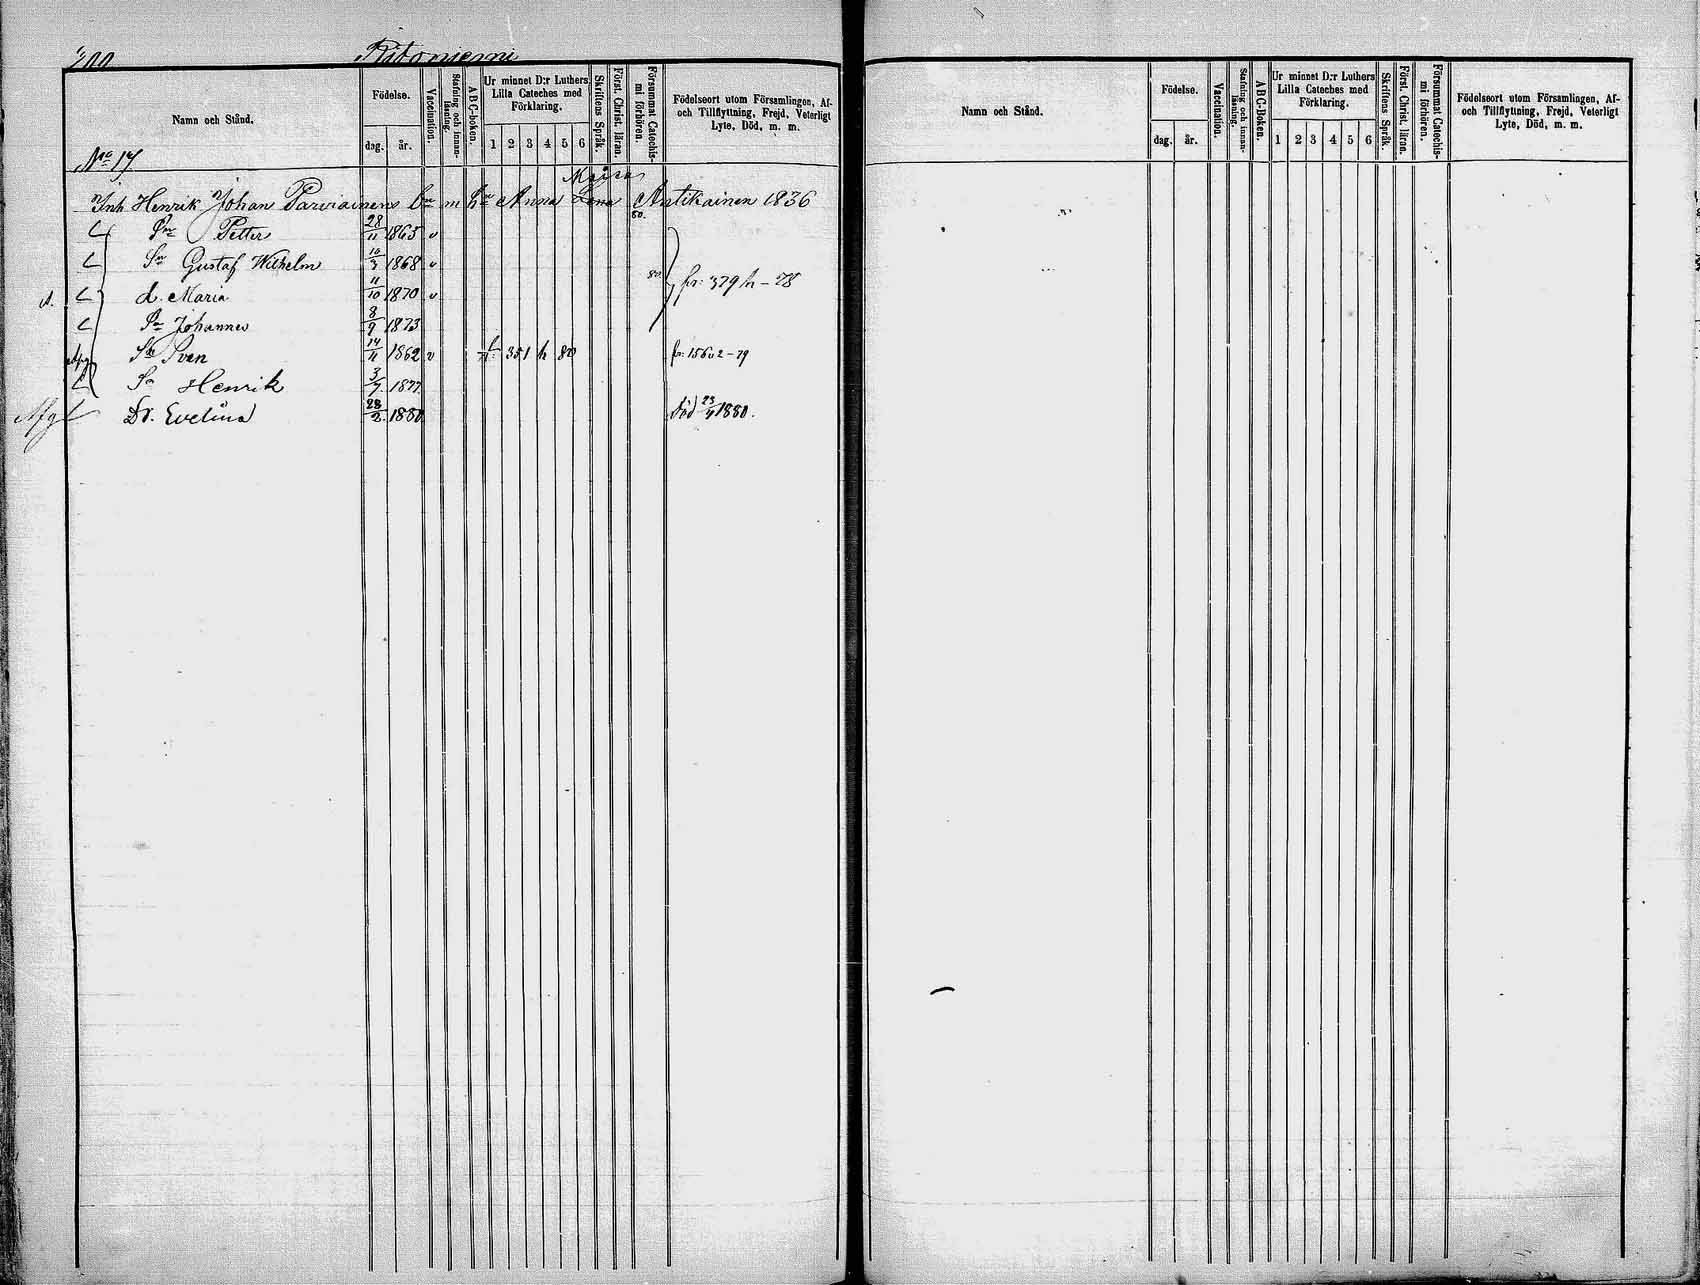 200 Ritoniemi
Namn och Stånd.
Födelse.
dag. år.
Vaccination.
Stafning och innan-läsning.
ABC-boken.
Ur minnet D:r Luthers
Lilla Cateches med
Förklaring.
1 2 3 4 5 6
Skriftens Språk.
Först. Christ. läran.
Försummat Catechis-
mi förhören.
Födelseort utom Församlingen, Af-
och Tillflyttning, Frejd, Veterligt
Lyte, Död, m. m.
No 17
Maja
Inh Henrik Johan Parviainens bn m hu Anna Lena Antikainen 1836
80.
Sn Petter 28/11 1865 v
Sn Gustaf Wilhelm 10/3 1868 v
80. fr: 379 h - 78
d. Maria 11/10 1870 v
Sn Johannes 8/9 1873
Sven 14/11 1862 v 351 h 80 fr: 156 v 2 - 79
Sn Henrik 3/7 1877
Dr. Evelina 28/2 1880 död 23/4 1880.
Namn och Stånd.
Födelse.
dag. år.
Vaccination.
Stafning och innan-läsning.
ABC-boken.
Ur minnet D:r Luthers
Lilla Cateches med
Förklaring.
1 2 3 4 5 6
Skriftens Språk.
Först. Christ. läran.
Försummat Catechis-
mi förhören.
Födelseort utom Församlingen, Af-
och Tillflyttning, Frejd, Veterligt
Lyte, Död, m. m.